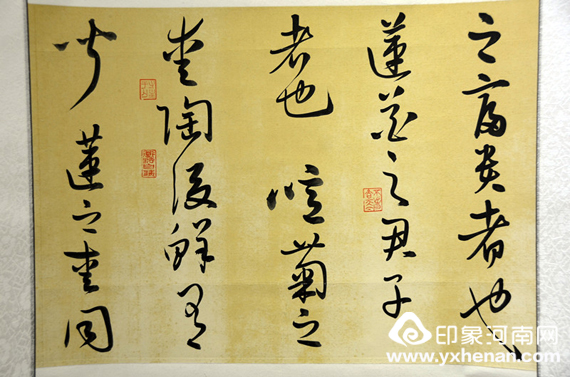 之富贵者也
蓮花之君子
者也 噫菊之
爱陶後鲜有
闻 蓮之爱同
印象河南网
www.yxhenan.com